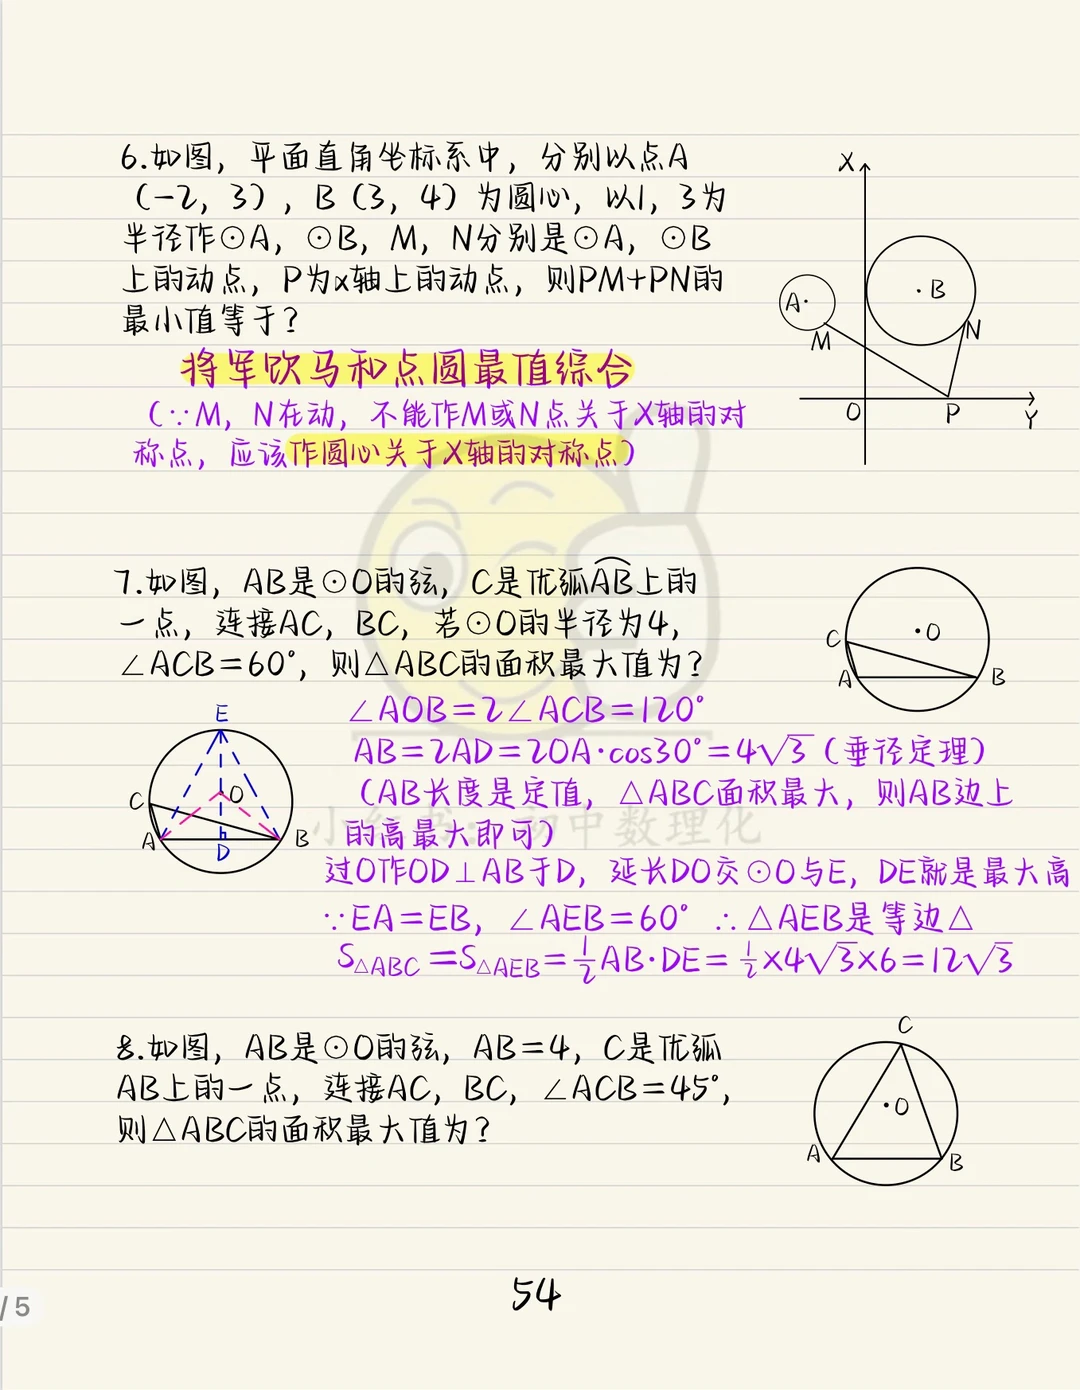 6.如图，平面直角坐标系中，分别以点A
（-2，3），B（3，4）为圆心，以1，3为
半径作⊙A，⊙B，M，N分别是⊙A，⊙B
上的动点，P为x轴上的动点，则PM+PN的
最小值等于？
将军饮马和点圆最值综合
（∵M，N在动，不能作M或N点关于X轴的对
称点，应该作圆心关于X轴的对称点）
X
A
B
M
N
O
P
Y
7.如图，AB是⊙O的弦，C是优弧AB上的
一点，连接AC，BC，若⊙O的半径为4，
∠ACB=60°，则△ABC的面积最大值为？
C
O
A
B
∠AOB=2∠ACB=120°
AB=2AD=2OA·cos30°=4√3（垂径定理）
（AB长度是定值，△ABC面积最大，则AB边上
的高最大即可）
过O作OD⊥AB于D，延长DO交⊙O与E，DE就是最大高
∵EA=EB，∠AEB=60° ∴△AEB是等边△
S△ABC=S△AEB=1/2AB·DE=1/2×4√3×6=12√3
E
C
O
A
h
B
D
小红书：初中数理化
8.如图，AB是⊙O的弦，AB=4，C是优弧
AB上的一点，连接AC，BC，∠ACB=45°，
则△ABC的面积最大值为？
C
O
A
B
54
/ 5